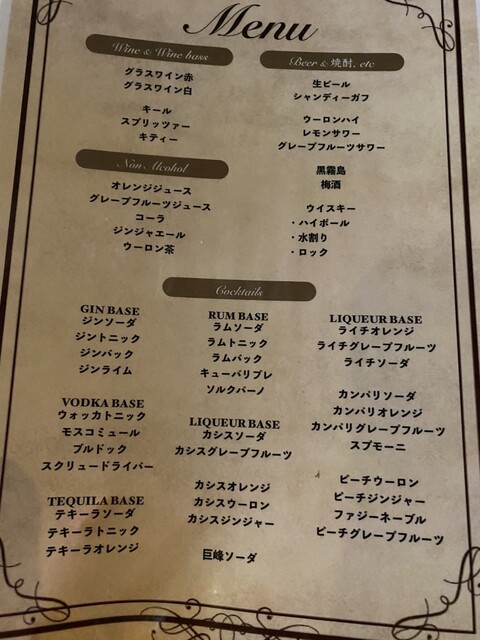 Menu
Wine & Wine bass
グラスワイン赤
グラスワイン白
キール
スプリッツァー
キティー
Non Alcohol
オレンジジュース
グレープフルーツジュース
コーラ
ジンジャエール
ウーロン茶
Beer & 焼酎, etc
生ビール
シャンディーガフ
ウーロンハイ
レモンサワー
グレープフルーツサワー
黒霧島
梅酒
ウイスキー
・ハイボール
・水割り
・ロック
Cocktails
GIN BASE
ジンソーダ
ジントニック
ジンバック
ジンライム
VODKA BASE
ウォッカトニック
モスコミュール
ブルドック
スクリュードライバー
TEQUILA BASE
テキーラソーダ
テキーラトニック
テキーラオレンジ
RUM BASE
ラムソーダ
ラムトニック
ラムバック
キューバリブレ
ソルクバーノ
LIQUEUR BASE
カシスソーダ
カシスグレープフルーツ
カシスオレンジ
カシスウーロン
カシスジンジャー
巨峰ソーダ
LIQUEUR BASE
ライチオレンジ
ライチグレープフルーツ
ライチソーダ
カンパリソーダ
カンパリオレンジ
カンパリグレープフルーツ
スプモーニ
ピーチウーロン
ピーチジンジャー
ファジーネーブル
ピーチグレープフルーツ